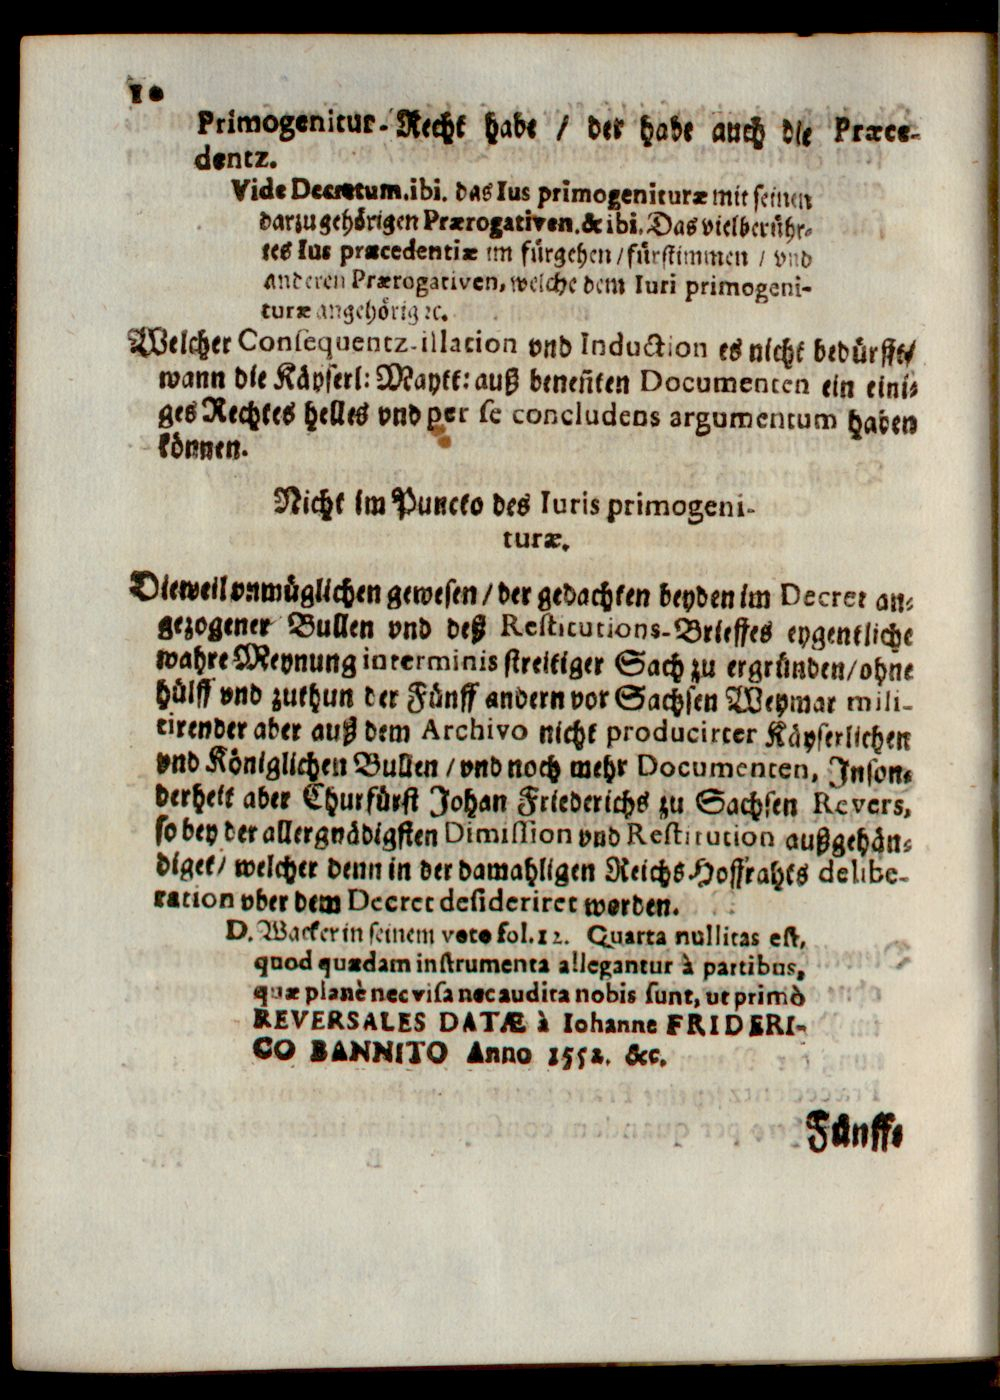 10
Primogenitur-Recht habe / der habe auch die Præce-
dentz.
Vide Decretum.ibi. das Ius primogenituræ mit seinen
darzugehörigen Prærogativen.&ibi.Das vielberühr-
tes Ius præcedentiæ im fürgehen/fürstimmen / vnd
anderen Prærogativen, welche dem Iuri primogeni-
turæ angehörig ꝛc.
Welcher Consequentz-illation vnd Induction es nicht bedürffte/
wann die Käyserl: Maytt: auß beneñten Documenten ein eini-
ges Rechtes helles vnd per se concludens argumentum haben
können.
Nicht im Puncto des Iuris primogeni-
turæ.
Dieweil vnmüglichen gewesen / der gedachten beyden im Decret an-
gezogener Bullen vnd deß Restitutions-Brieffes eygentliche
wahre Meynung in terminis streitiger Sach zu ergründen/ohne
hülff vnd zuthun der Fünff andern vor Sachsen Weymar mili-
tirender aber auß dem Archivo nicht producirter Käyserlichen
vnd Königlichen Bullen / vnd noch mehr Documenten, Inson-
derheit aber Churfürst Johan Friederichs zu Sachsen Revers,
so bey der allergnädigsten Dimission vnd Restitution außgehän-
diget/ welcher denn in der damahligen Reichs-Hoffrahts delibe-
ration vber dem Decret desideriret worden.
D. Wacker in seinem voto fol.12. Quarta nullitas est,
quod quædam instrumenta allegantur à partibus,
quæ planè nec visa nec audita nobis sunt, ut primò
REVERSALES DATÆ à Iohanne FRIDERI-
CO BANNITO Anno 1552. &c.
Fünff-